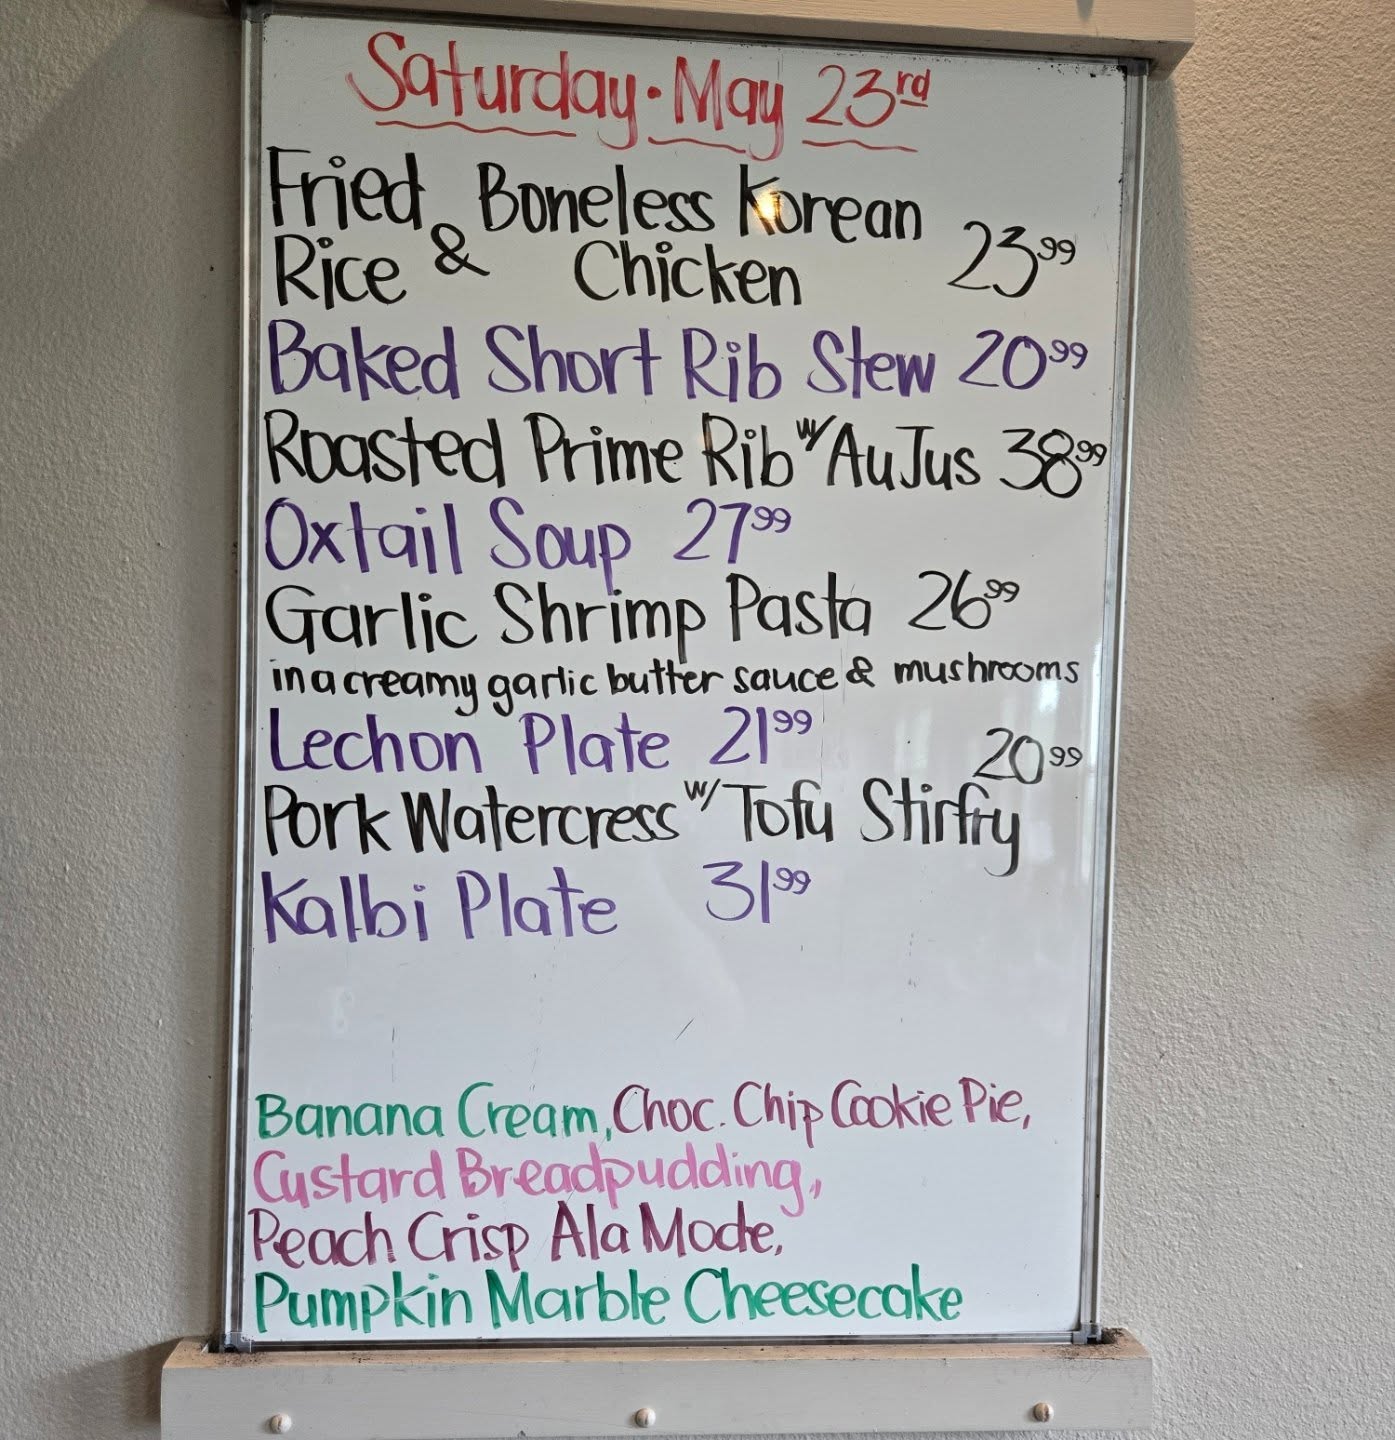 Saturday · May 23rd
Fried Boneless Korean
Rice & Chicken 23.99
Baked Short Rib Stew 20.99
Roasted Prime Rib w/ Au Jus 38.99
Oxtail Soup 27.99
Garlic Shrimp Pasta 26.99
in a creamy garlic butter sauce & mushrooms
Lechon Plate 21.99
20.99
Pork Watercress w/ Tofu Stirfry
Kalbi Plate 31.99
Banana Cream, Choc. Chip Cookie Pie,
Custard Breadpudding,
Peach Crisp Ala Mode,
Pumpkin Marble Cheesecake